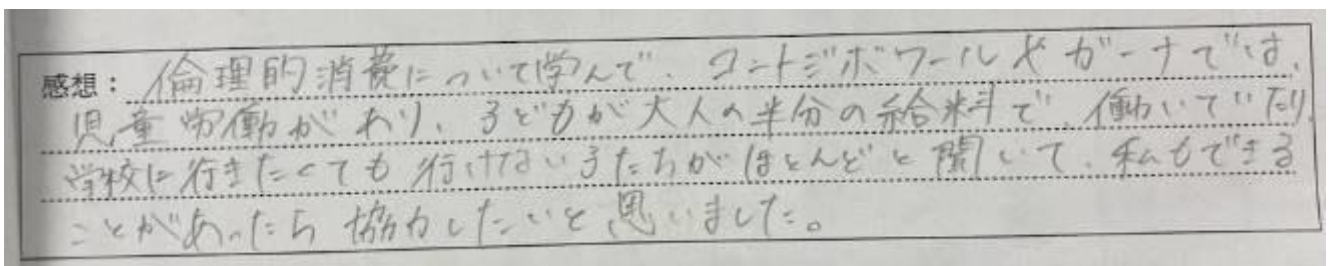 感想：倫理的消費について学んで、コートジボワールやガーナでは、
児童労働があり、子どもが大人の半分の給料で、働いていたり
学校に行きたくても行けない子たちがほとんどと聞いて、私もできる
ことがあったら協力したいと思いました。